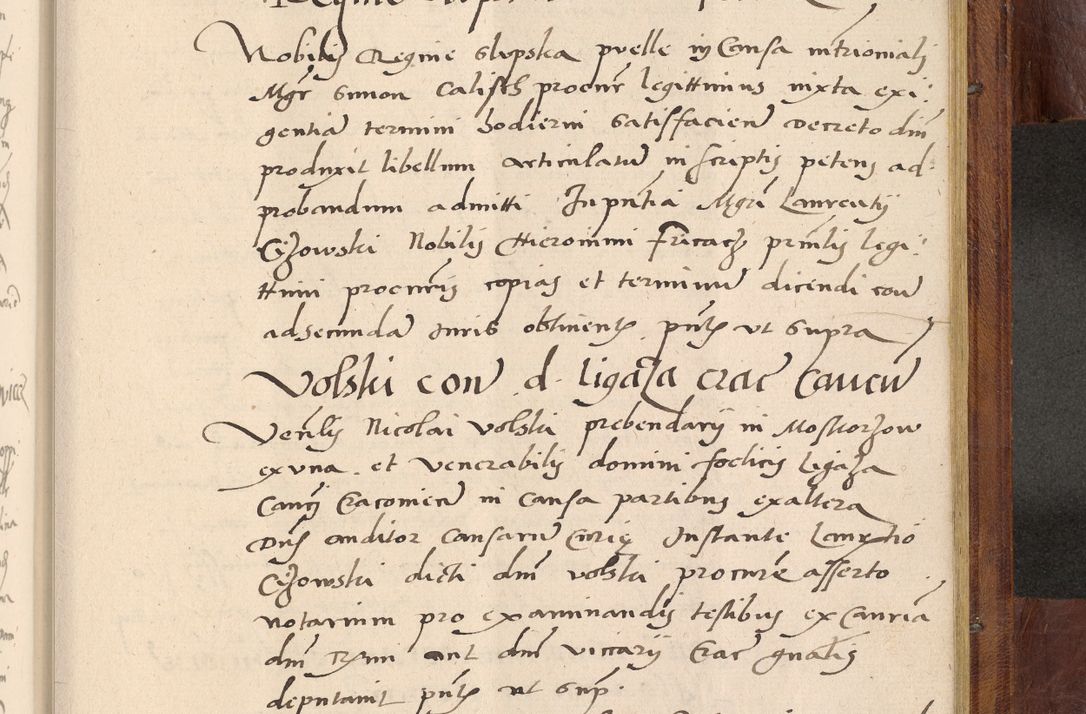 Nobilis Regine Slupska puelle in Causa mtrioniali
Mgr Simon Calisch procur legittimus iuxta exi:
gentia termini hodierni satisfacien Decreto dni
produxit libellum articulatu in scriptis petens ad
probandum admitti In pntia Mgri Laurentij
Czowski Nobilis Hieronimi Fricacz prinlis legi:
ttimi procuris copias et terminu dicendi con
ad secunda iuris obtinentis pntis ut supra
Volski con d. Ligaza crac Cancu
Venlis Nicolai Volski prebendarij in Moskorzow
ex vna et venerabilis domini foelicis Ligaza
Canci Cracovien in Causa partibus ex altera
Dns auditor Causaru Curie Instante Laurentio
Czowski dicti dni Volski procure asserto
notarium pro examinandis testibus ex Cancria
dni aut dni vicarij Crac gnalis
deputavit pntis ut sup.